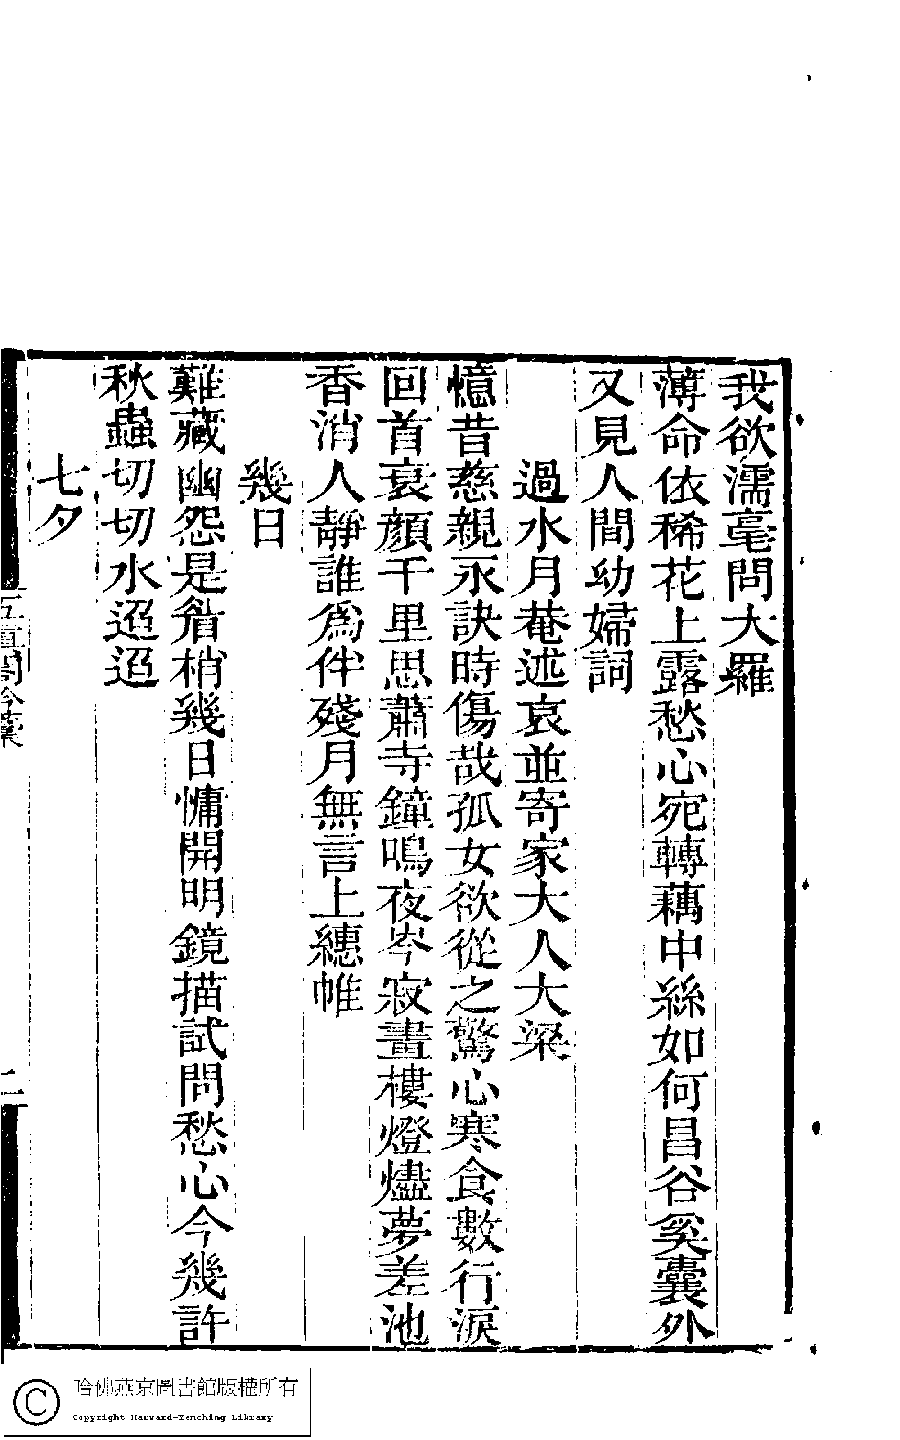 我欲濡毫問大羅
薄命依稀花上露愁心宛轉藕中絲如何昌谷奚囊外
又見人間幼婦詞
過水月菴述哀並寄家大人大梁
憶昔慈親永訣時傷哉孤女欲從之驚心寒食數行淚
回首衰顏千里思蕭寺鐘鳴夜岑寂畫樓燈燼夢差池
香消人靜誰爲伴殘月無言上繐帷
幾日
難藏幽怨是眉梢幾日慵開明鏡描試問愁心今幾許
秋蟲切切水迢迢
七夕
二
哈佛燕京圖書館版權所有
Copyright Harvard-Yenching Library